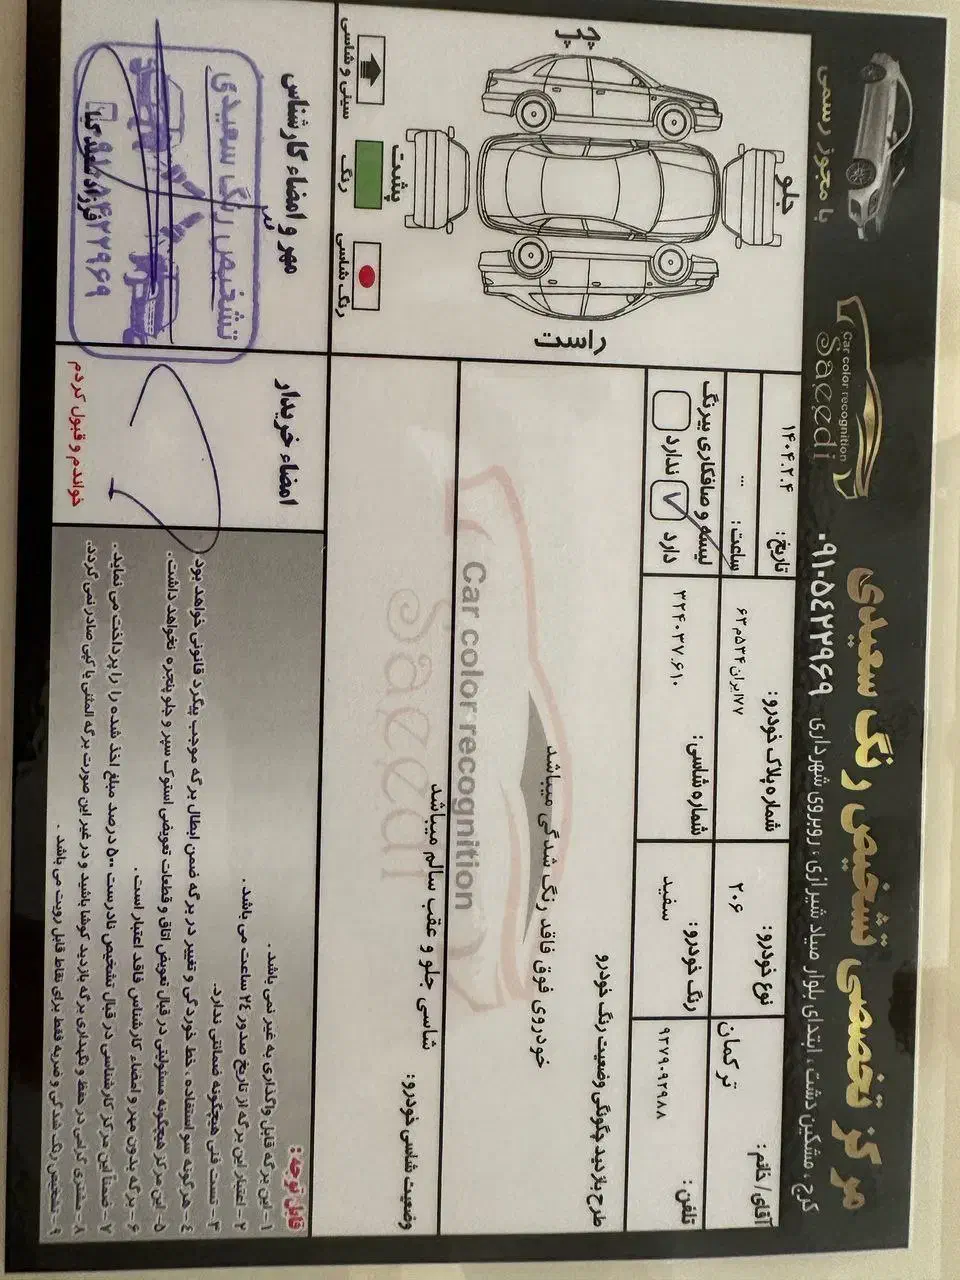 مرکز تخصصی تشخیص رنگ سعیدی
با مجوز رسمی
Car color recognition
Saeedi
کرج ، مشکین دشت ، ابتدای بلوار صیاد شیرازی ، روبروی شهرداری
۰۹۱۰۵۴۲۲۹۶۹
آقای/ خانم: ترکمان
نوع خودرو: ۲۰۶
شماره پلاک خودرو:
۷۷ایران۵۳۴م۶۲
تاریخ: ۱۴۰۴.۲.۴
ساعت: ...
تلفن: ۹۳۷۹۰۹۲۹۸۸
رنگ خودرو: سفید
شماره شاسی:
۳۲۴۰۳۷.۶۱۰
لیسه و صافکاری بیرنگ
دارد
ندارد
طرح بازدید چگونگی وضعیت رنگ خودرو
خودروی فوق فاقد رنگ شدگی میباشد
Car color recognition
Saeedi
وضعیت شاسی خودرو:
شاسی جلو و عقب سالم میباشد
چپ
جلو
پشت
راست
سینی و شاسی
رنگ
رنگ شاسی
قابل توجه:
۱ - این برگه قابل واگذاری به غیر نمی باشد .
۲ - اعتبار این برگه از تاریخ صدور ۲۴ ساعت می باشد .
۳ - تست فنی هیچگونه ضمانتی ندارد.
۴ - هرگونه سو استفاده ، خط خوردگی و تغییر در برگه ضمن ابطال برگه موجب پیگرد قانونی خواهد بود
۵ - این مرکز هیچگونه مسئولیتی در قبال تعویض اتاق و قطعات تعویضی استوک سپر و جلو پنجره نخواهد داشت.
۶ - برگه بدون مهر و امضاء کارشناس فاقد اعتبار است .
۷ - ضمناً این مرکز کارشناسی در قبال تشخیص نادرست ۵۰ درصد مبلغ اخذ شده را پرداخت می نماید .
۸ - مشتری گرامی در حفظ و نگهداری برگه بازدید کوشا باشید و در غیر این صورت برگه المثنی یا کپی صادر نمی گردد.
۹ - تشخیص رنگ شدگی و ضربه فقط برای نقاط قابل رویت می باشد .
امضاء خریدار
خواندم و قبول کردم
مهر و امضاء کارشناس
تشخیص رنگ سعیدی